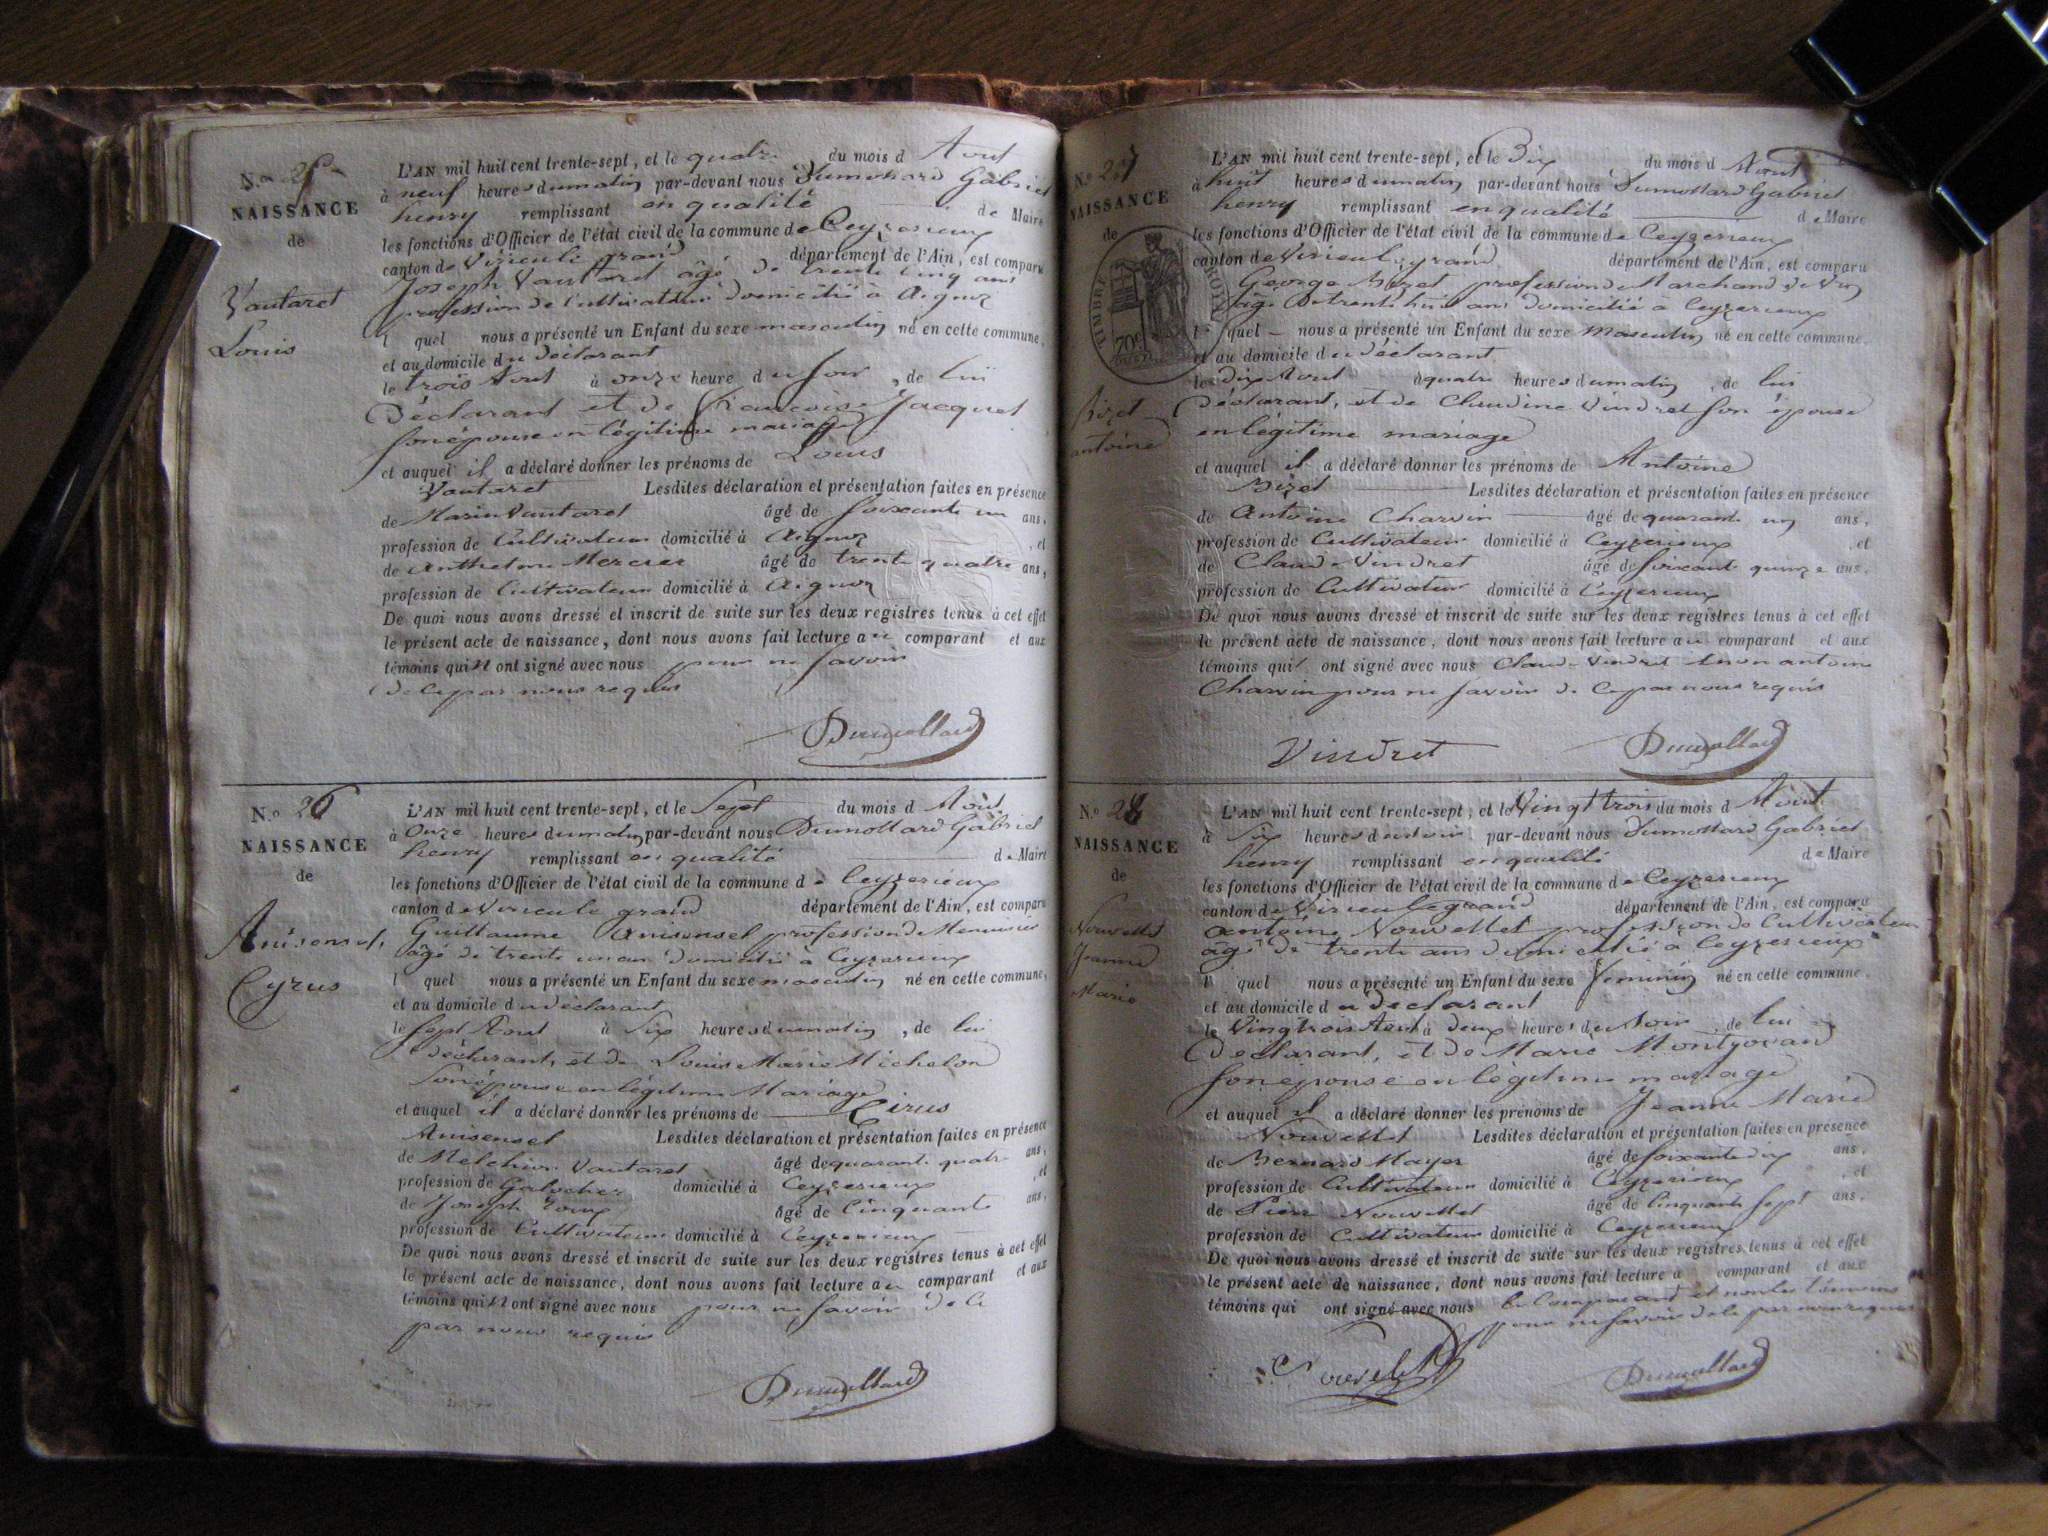 N.o 25
NAISSANCE
de
Vautaret
Louis
L'AN mil huit cent trente-sept, et le quatre du mois d Aout
à neuf heures du matin par-devant nous Dumollard Gabriel
henry remplissant en qualité de Maire
les fonctions d'Officier de l'état civil de la commune de Ceyzerieux
canton de Virieu le grand département de l'Ain, est comparu
Joseph Vautaret âgé de trente cinq ans
profession de Cultivateur domicilié à Aignoz
l quel nous a présenté un Enfant du sexe masculin né en cette commune,
et au domicile du déclarant
le trois Aout à onze heure du soir, de lui
Déclarant et de Françoise Jacquet
son épouse en légitime mariage
et auquel il a déclaré donner les prénoms de Louis
Vautaret Lesdites déclaration et présentation faites en présence
de Marin Vautaret âgé de soixante un ans,
profession de Cultivateur domicilié à Aignoz, et
de Anthelme Mercier âgé de trente quatre ans,
profession de Cultivateur domicilié à Aignoz
De quoi nous avons dressé et inscrit de suite sur les deux registres tenus à cet effet
le présent acte de naissance, dont nous avons fait lecture au comparant et aux
témoins qui n ont signé avec nous pour ne savoir
de ce par nous requis
Dumollard
N.o 26
NAISSANCE
de
Anisensel
Cyrus
L'AN mil huit cent trente-sept, et le Sept du mois d Aout
à Onze heures du matin par-devant nous Dumollard Gabriel
henry remplissant en qualité de Maire
les fonctions d'Officier de l'état civil de la commune de Ceyzerieux
canton de Virieu le grand département de l'Ain, est comparu
Guillaume Anisensel profession de Menuisier
âgé de trente un an domicilié à Ceyzerieux
l quel nous a présenté un Enfant du sexe masculin né en cette commune,
et au domicile du déclarant
le Sept Aout à Six heures du matin, de lui
déclarant, et de Louise Marie Michelon
Son épouse en légitime Mariage
et auquel il a déclaré donner les prénoms de Cirus
Anisensel Lesdites déclaration et présentation faites en présence
de Melchior Vautaret âgé de quarante quatre ans,
profession de Galocher domicilié à Ceyzerieux, et
de Joseph âgé de Cinquante ans,
profession de Cultivateur domicilié à Ceyzerieux
De quoi nous avons dressé et inscrit de suite sur les deux registres tenus à cet effet
le présent acte de naissance, dont nous avons fait lecture au comparant et aux
témoins qui n ont signé avec nous pour ne savoir de ce
par nous requis
Dumollard
N.o 27
NAISSANCE
de
TIMBRE ROYAL
70c
Bizet
antoine
L'AN mil huit cent trente-sept, et le Dix du mois d Aout
à huit heures du matin par-devant nous Dumollard Gabriel
henry remplissant en qualité de Maire
les fonctions d'Officier de l'état civil de la commune de Ceyzerieux
canton de Virieu le grand département de l'Ain, est comparu
George Bizet profession de Marchand de Vin
âgé de trente huit ans domicilié à Ceyzerieux
l quel nous a présenté un Enfant du sexe Masculin né en cette commune,
et au domicile du déclarant
le Dix Aout à quatre heures du matin, de lui
Déclarant, et de Claudine Vindret son épouse
en légitime mariage
et auquel il a déclaré donner les prénoms de Antoine
Bizet Lesdites déclaration et présentation faites en présence
de Antoine Charvin âgé de quarante un ans,
profession de Cultivateur domicilié à Ceyzerieux, et
de Claude Vindret âgé de soixante quinze ans,
profession de Cultivateur domicilié à Ceyzerieux
De quoi nous avons dressé et inscrit de suite sur les deux registres tenus à cet effet
le présent acte de naissance, dont nous avons fait lecture au comparant et aux
témoins qui ont signé avec nous Claude Vindret et non antoine
Charvin pour ne savoir de ce par nous requis
Vindret Dumollard
N.o 28
NAISSANCE
de
Nouvellet
Jeanne
Marie
L'AN mil huit cent trente-sept, et le Vingt trois du mois d Aout
à Six heures du soir par-devant nous Dumollard Gabriel
henry remplissant en qualité de Maire
les fonctions d'Officier de l'état civil de la commune de Ceyzerieux
canton de Virieu le grand département de l'Ain, est comparu
antoine Nouvellet profession de Cultivateur
âgé de trente ans domicilié à Ceyzerieux
l quel nous a présenté un Enfant du sexe Feminin né en cette commune,
et au domicile du déclarant
le Vingtrois Aout à deux heures du soir, de lui
Declarant, et de Marie Montgovan
son épouse en légitime mariage
et auquel il a déclaré donner les prénoms de Jeanne Marie
Nouvellet Lesdites déclaration et présentation faites en présence
de Bernard Mayer âgé de soixante dix ans,
profession de Cultivateur domicilié à Ceyzerieux, et
de Pierre Nouvellet âgé de Cinquante sept ans,
profession de Cultivateur domicilié à Ceyzerieux
De quoi nous avons dressé et inscrit de suite sur les deux registres tenus à cet effet
le présent acte de naissance, dont nous avons fait lecture a comparant et aux
témoins qui ont signé avec nous le Comparant et non les témoins
pour ne savoir de ce par nous requis
Nouvellet Dumollard